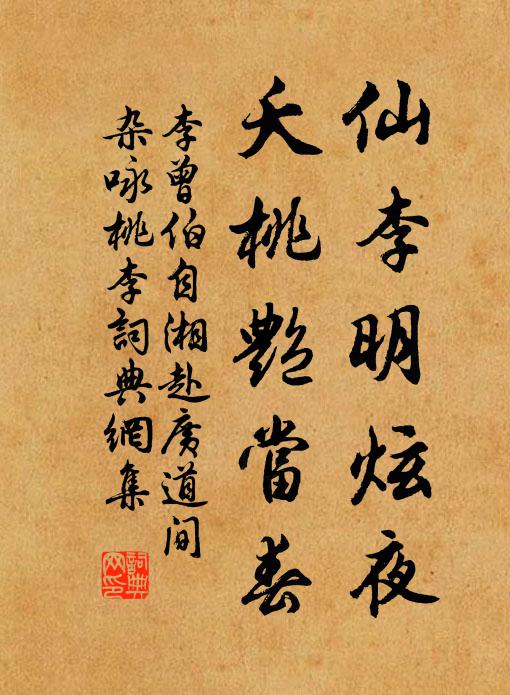 仙李明炫夜
夭桃艷當春
李曾伯自湘赴廣道间
杂咏桃李詞典網集
詞典
网印